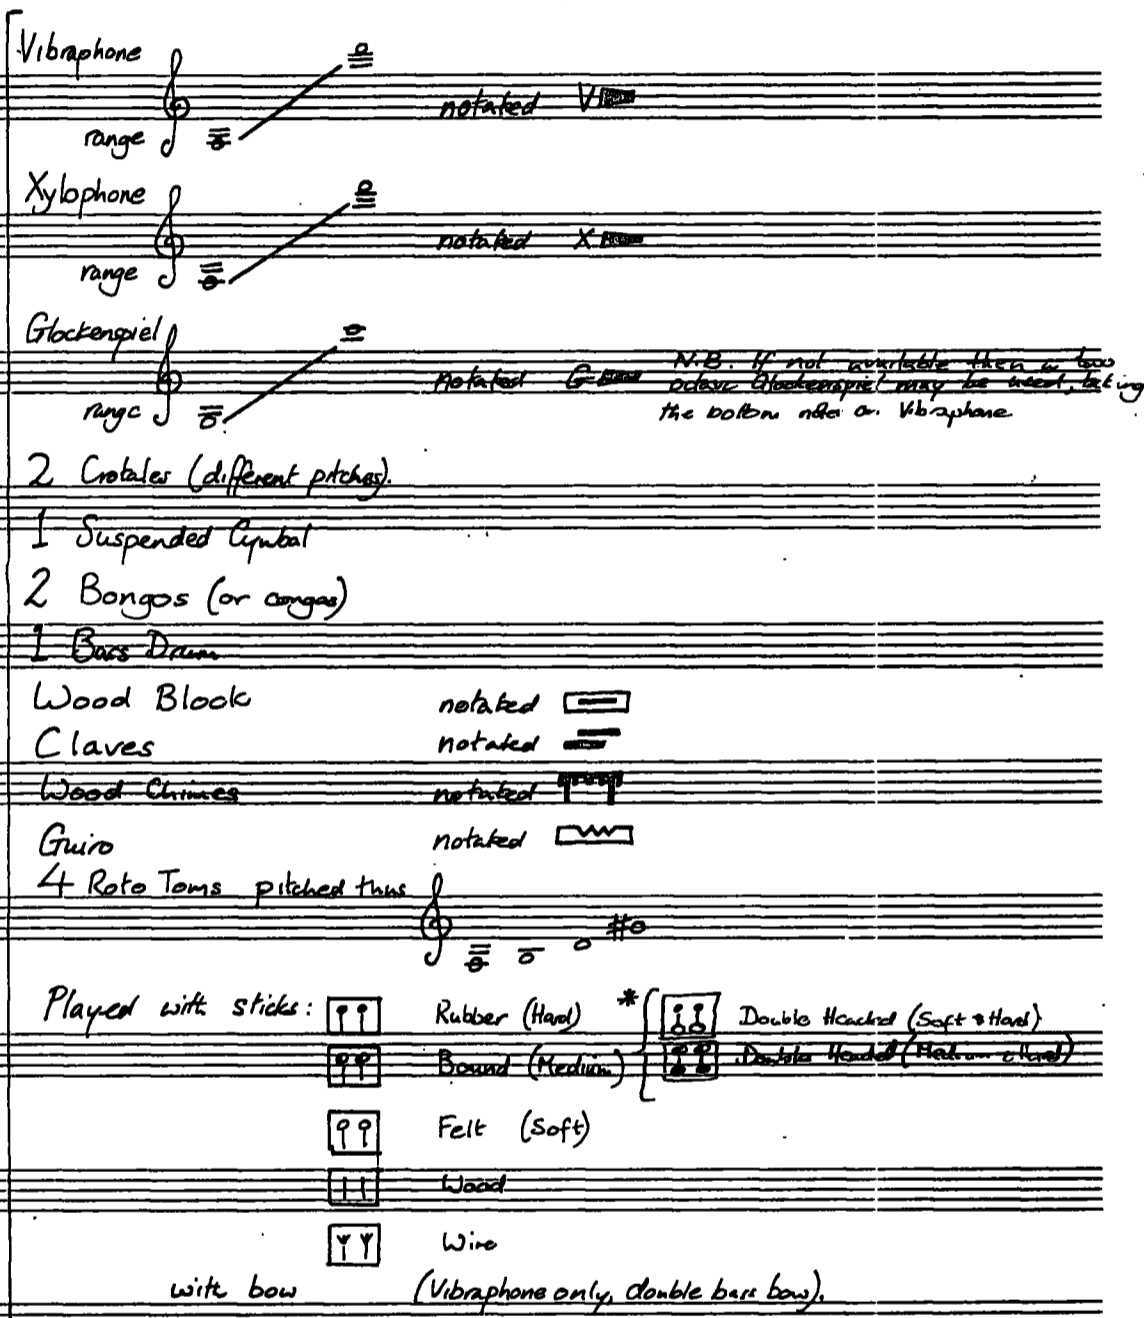 Vibraphone
range
notated V
Xylophone
range
notated X
Glockenspiel
range
notated G
N.B. If not available then a two
octave Glockenspiel may be used, taking
the bottom notes on Vibraphone
2 Crotales (different pitches).
1 Suspended Cymbal
2 Bongos (or congas)
1 Bass Drum
Wood Block notated
Claves notated
Wood Chimes notated
Guiro notated
4 Roto Toms pitched thus
Played with sticks: Rubber (Hard) * Double Headed (Soft & Hard)
Bound (Medium) Double Headed (Medium & Hard)
Felt (Soft)
Wood
Wire
with bow (Vibraphone only, double bass bow).